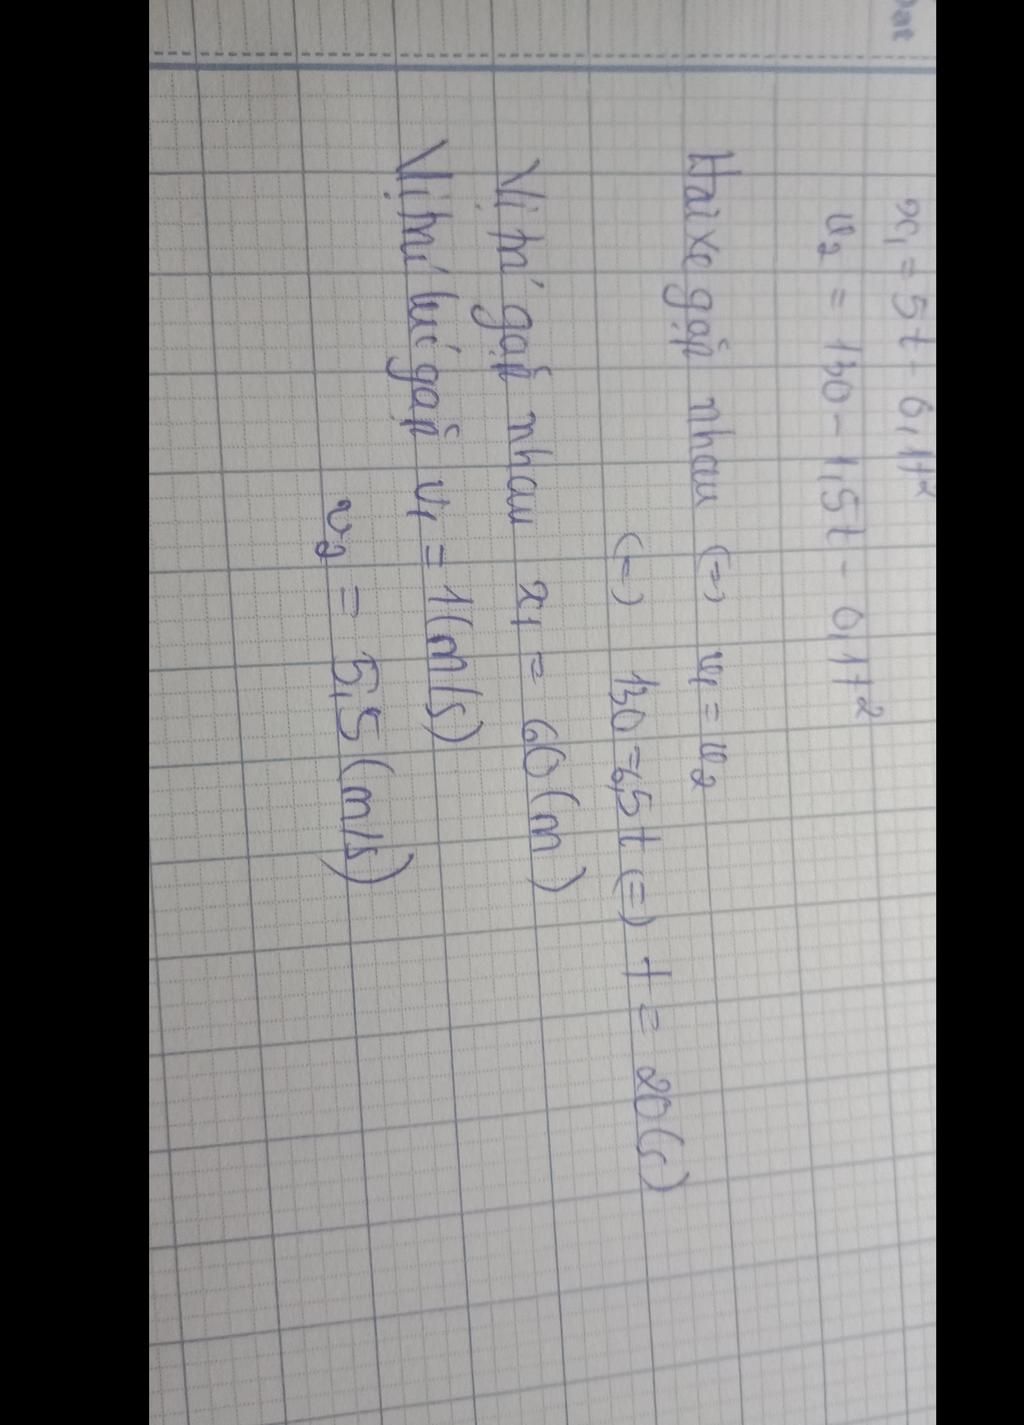 x₁ = 5t - 0,1t²
v₂ = 130 - 1,5t - 0,1t²
Hai xe gặp nhau (=) v₁ = v₂
(=) 130 = 6,5t (=) t = 20(s)
Vị trí gặp nhau x₁ = 60(m)
Vị trí lúc gặp v₁ = 1(m/s)
v₂ = 5,5(m/s)